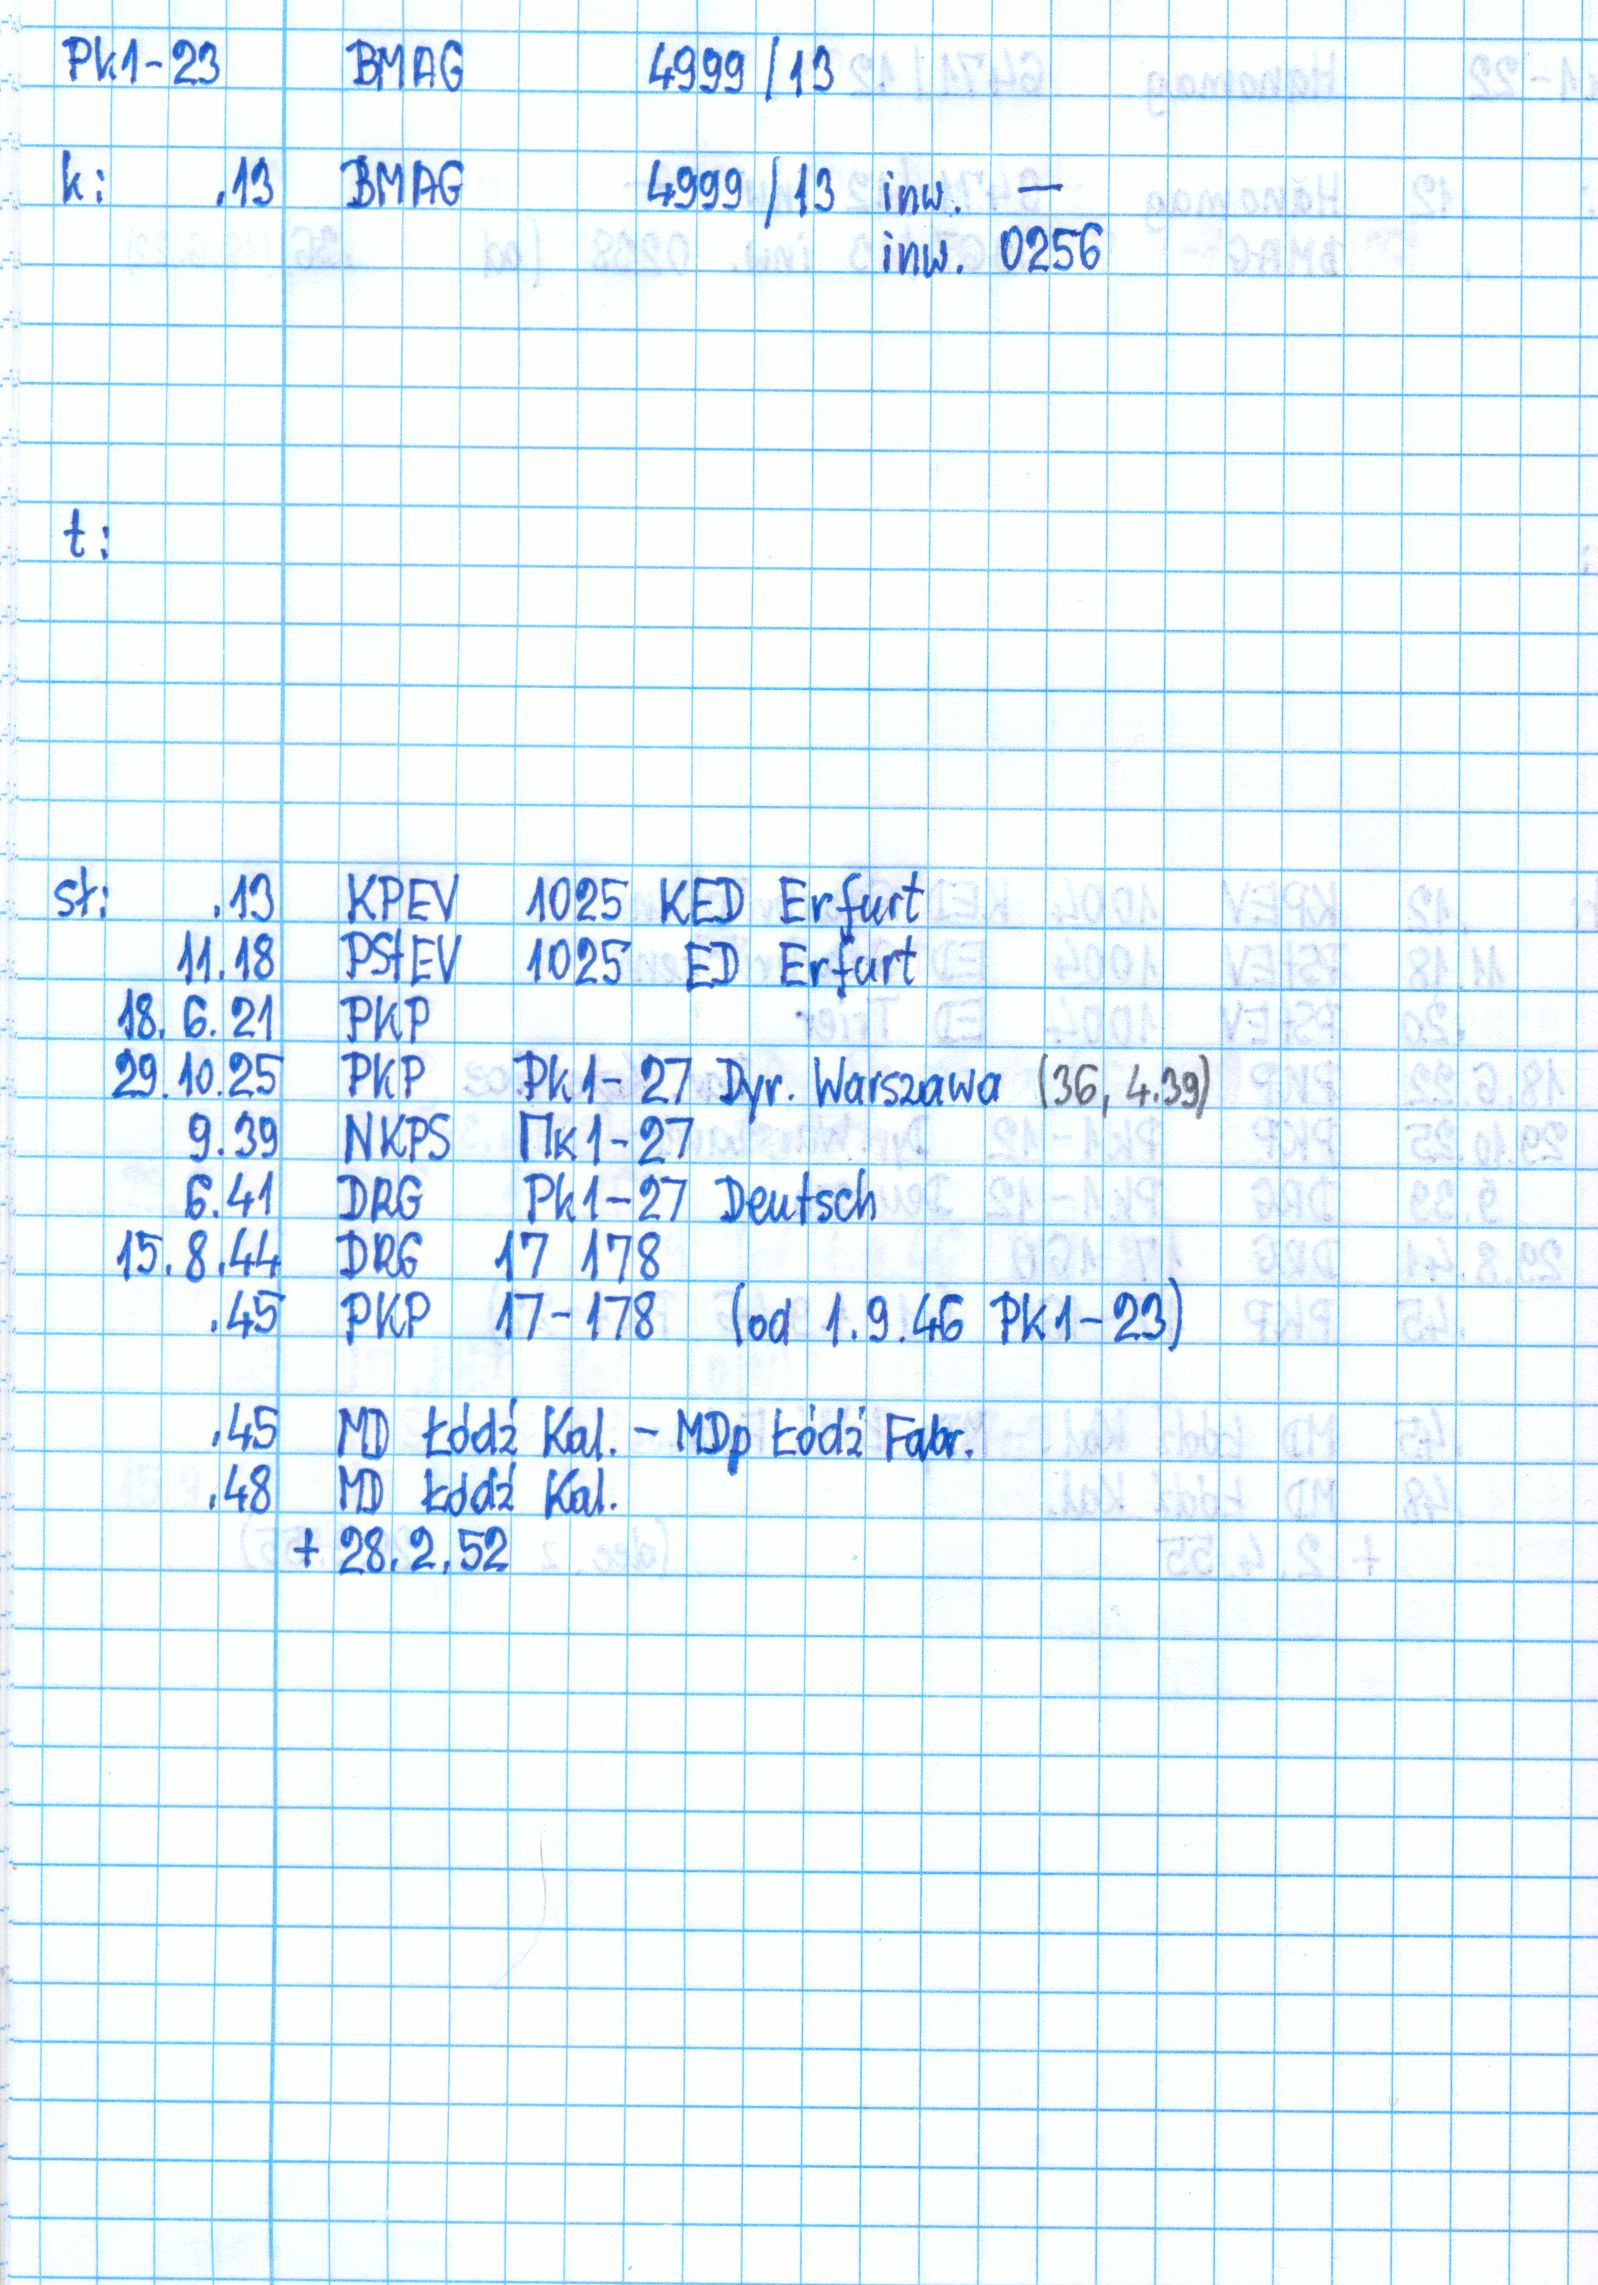 Pk1-23 BMAG 4999/13
k: .13 BMAG 4999/13 inw. —
inw. 0256
t:
st: .13 KPEV 1025 KED Erfurt
11.18 PStEV 1025 ED Erfurt
18.6.21 PKP
29.10.25 PKP Pk1-27 Dyr. Warszawa (36, 4.39)
9.39 NKPS Пк1-27
6.41 DRG Pk1-27 Deutsch
15.8.44 DRG 17 178
.45 PKP 17-178 (od 1.9.46 Pk1-23)
.45 MD Łódź Kal. - MDp Łódź Fabr.
.48 MD Łódź Kal.
+ 28.2.52